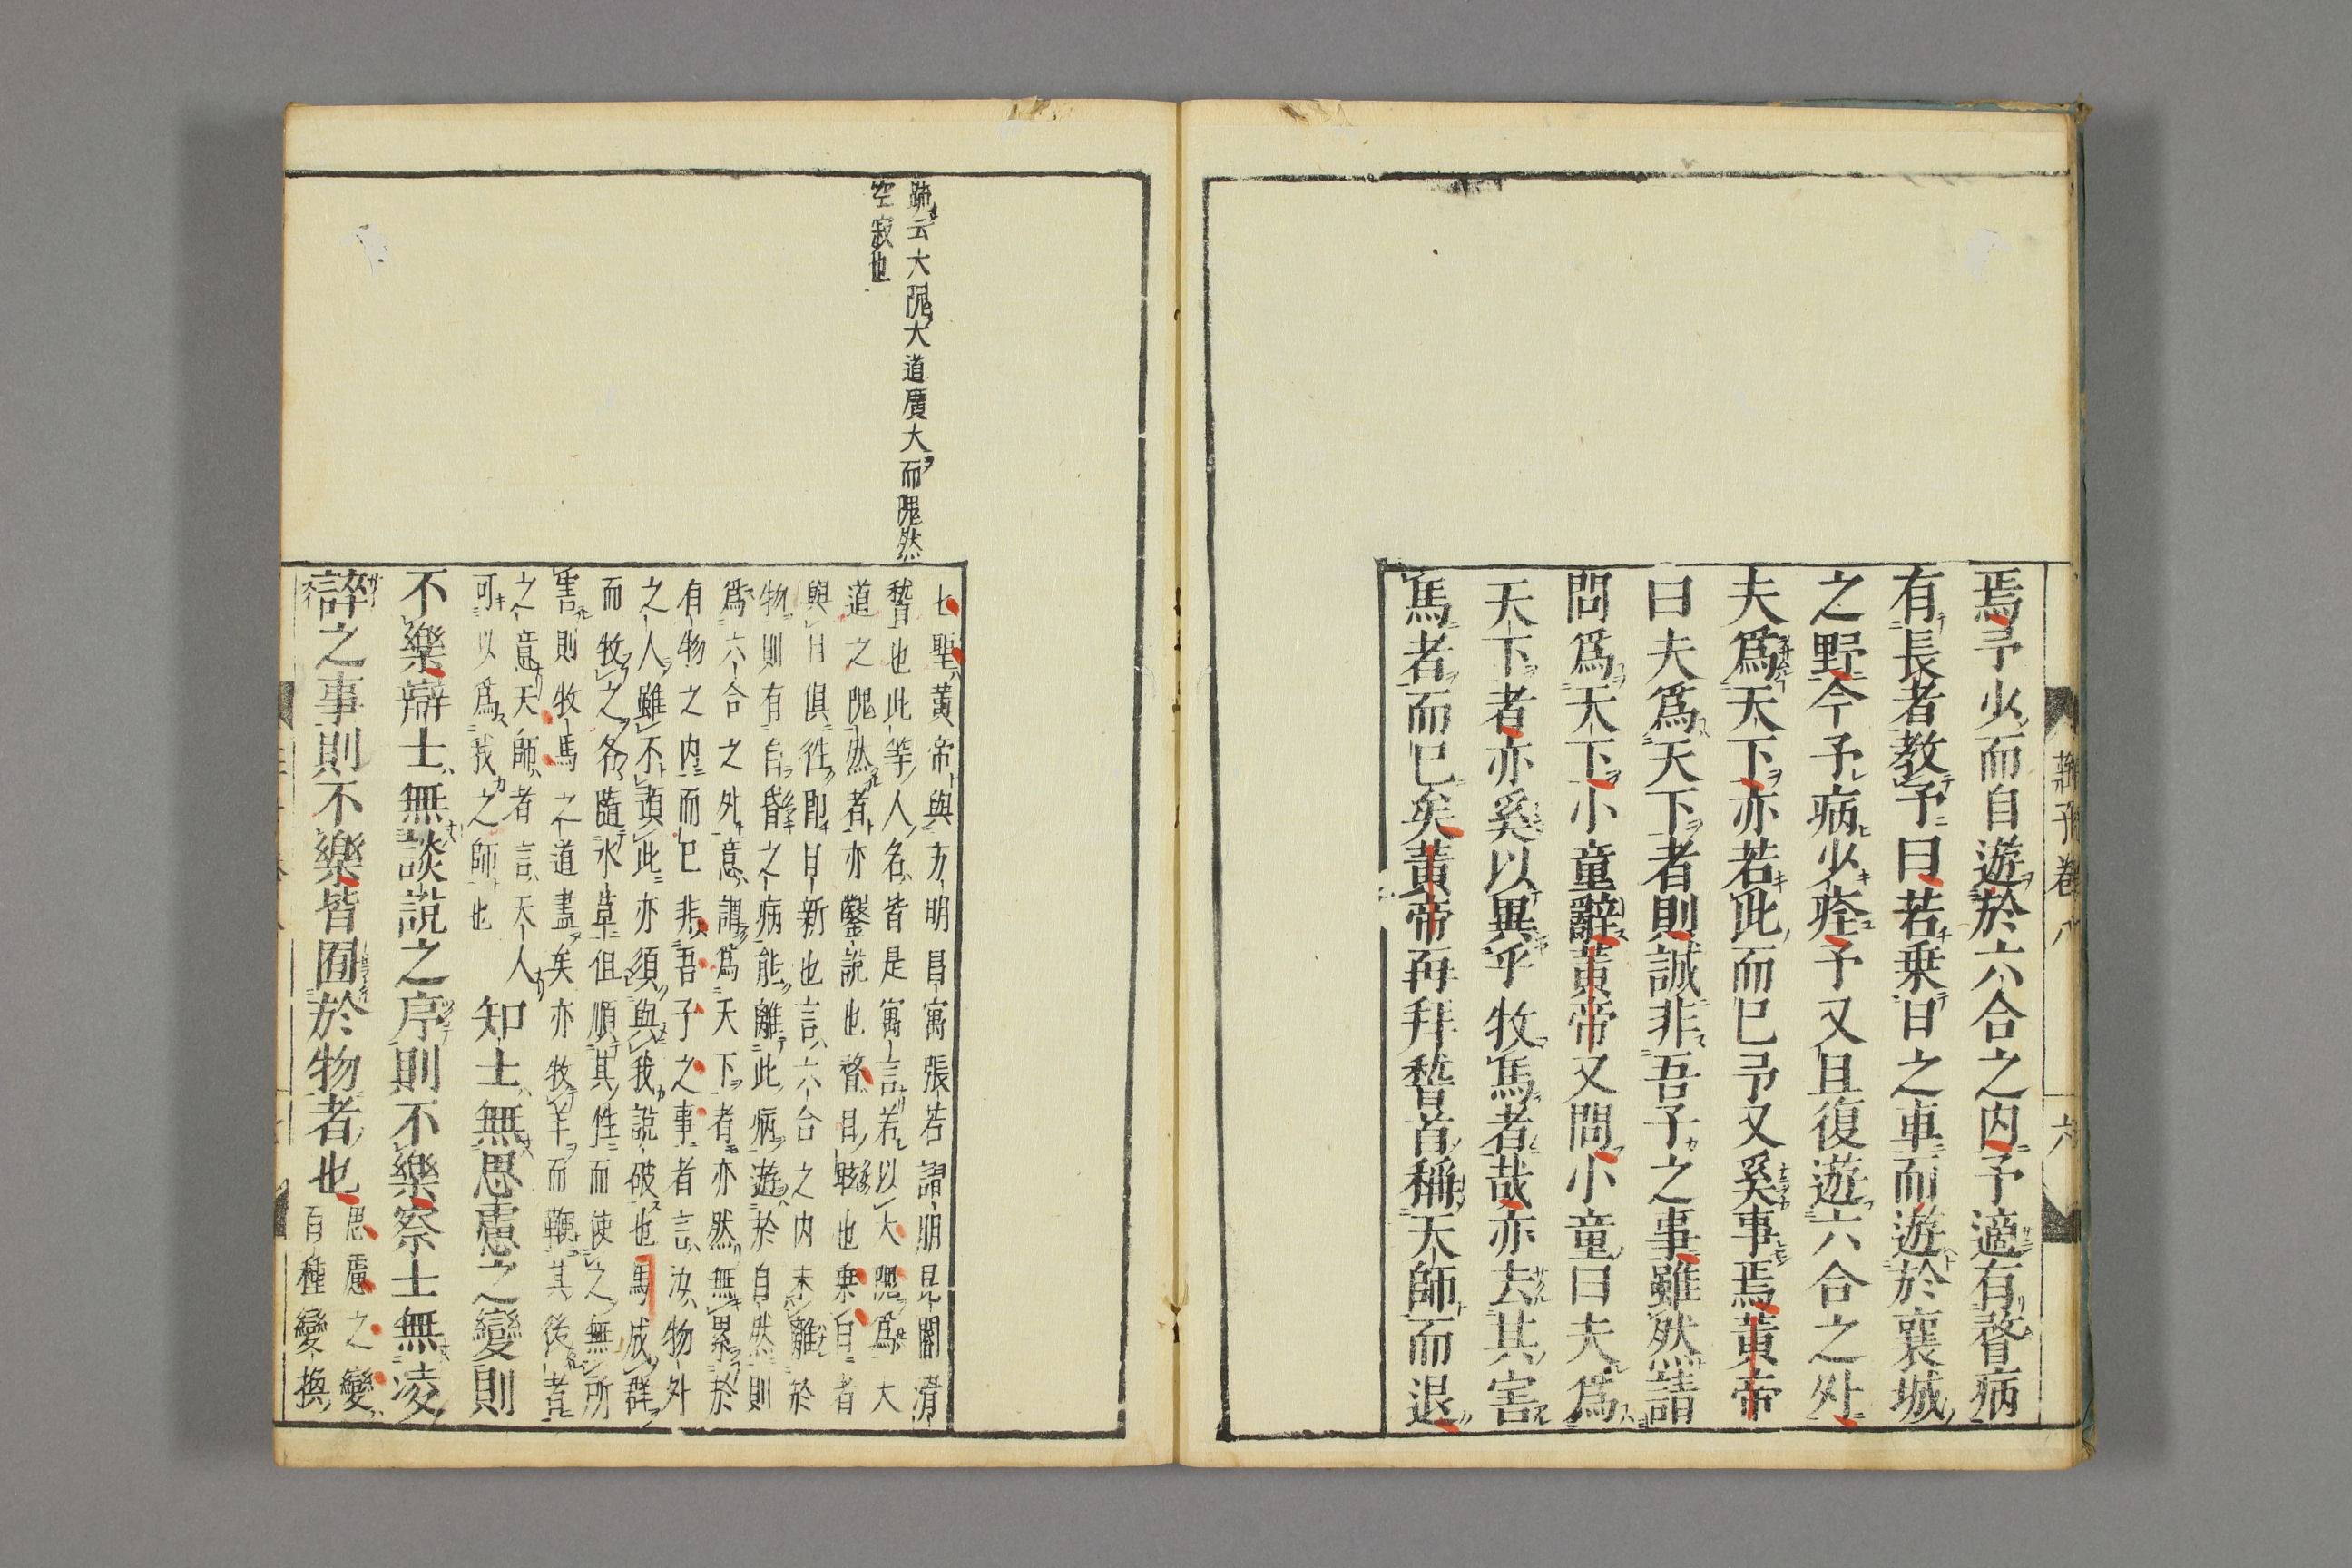 焉予少而自遊於六合之内予適有瞀病
有長者教予曰若乗日之車而遊於襄城
之野今予病少痊予又且復遊六合之外
夫爲天下亦若此而已予又奚事焉黄帝
曰夫爲天下者則誠非吾子之事雖然請
問爲天下小童辭黄帝又問小童曰夫爲
天下者亦奚以異乎牧馬者哉亦去其害
馬者而已矣黄帝再拜稽首稱天師而退
莊子卷八
六
疏云大隗大道廣大而隗然
空寂也
七聖黄帝與方明昌㝢張若謵朋昆閽滑
稽也此等人名皆是寓言若以大隗爲大
道之隗然者亦鑿説也瞀目眩也乗日者
與日倶徃即日新也言六合之内未離於
物則有自昏之病能離此病遊於自然則
爲六合之外意謂爲天下者亦然無累於
有物之内而已非吾子之事者言汝物外
之人雖不須此亦須與我説破也馬成群
而牧之各隨水草但順其性而使之無所
害則牧馬之道盡矣亦牧羊而鞭其後者
之意天師者言天人
可以爲我之師也
知士無思慮之變則
不樂辯士無談説之序則不樂察士無凌
誶之事則不樂皆囿於物者也
思慮之變
百種變換